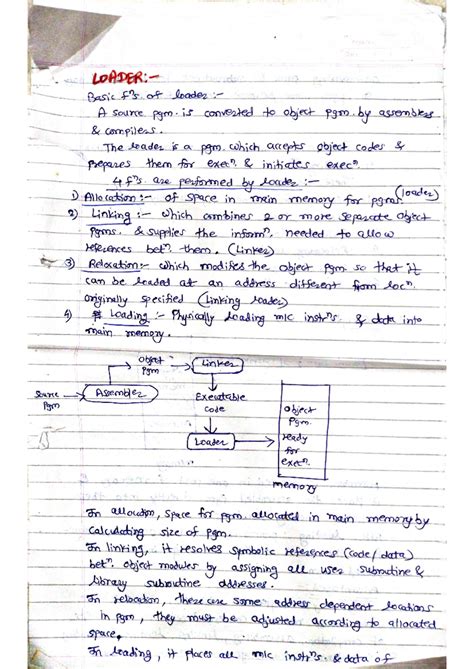 LOADER:-
Basic fⁿs. of loader :-
A source pgm. is converted to object pgm. by assemblers
& compilers.
The loader is a pgm. which accepts object codes &
prepares them for execⁿ & initiates execⁿ.
4 fⁿs. are performed by loader :-
1) Allocation :- of space in main memory for pgms. (loader)
2) Linking :- which combines 2 or more separate object
Pgms. & supplies the informⁿ. needed to allow
references betⁿ. them. (Linker)
3) Relocation :- which modifies the object pgm so that it
can be loaded at an address different from locⁿ.
originally specified (Linking loader)
4) Loading :- Physically loading m/c instrⁿs. & data into
main memory.
Source
Pgm
Assembler
object
Pgm
Linker
Executable
code
Loader
object
Pgm.
ready
for
execⁿ.
memory
In allocation, space for pgm. allocated in main memory by
calculating size of pgm.
In linking, it resolves symbolic references (code/data)
betⁿ. object modules by assigning all user subroutine &
library subroutine addresses.
In relocation, there are some address dependent locations
in pgm, they must be adjusted according to allocated
space.
In loading, it places all m/c instrⁿs. & data of